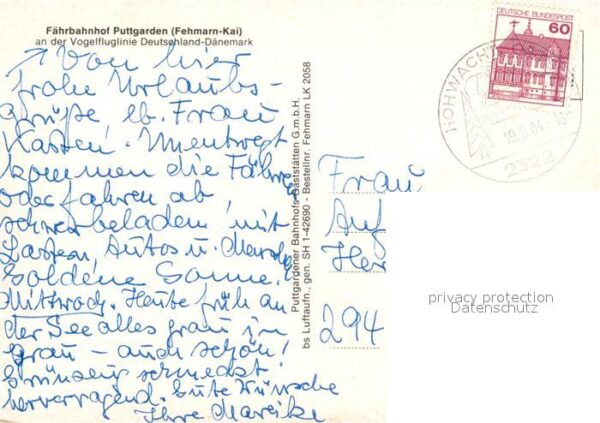 Fährbahnhof Puttgarden (Fehmarn-Kai)
an der Vogelfluglinie Deutschland-Dänemark
Von hier
frohe Urlaubs-
grüße lb. Frau
Karsten! Unentwegt
kommen die Fähren
oder fahren ab
schwer beladen mit
Lasten, Autos u.
Goldene Sonne.
Mittwoch. Heute früh an
der See alles grau in
grau – auch schön!
schmeckt
hervorragend. Gute Wünsche
Ihre Mareike
Puttgardener Bahnhofs-Gaststätten G.m.b.H.
bs Luftaufn., gen. SH 1-42690 - Bestellnr. Fehmarn LK 2058
DEUTSCHE BUNDESPOST
60
HOHWACHT
19.9.84
2322
Frau
294
privacy protection
Datenschutz